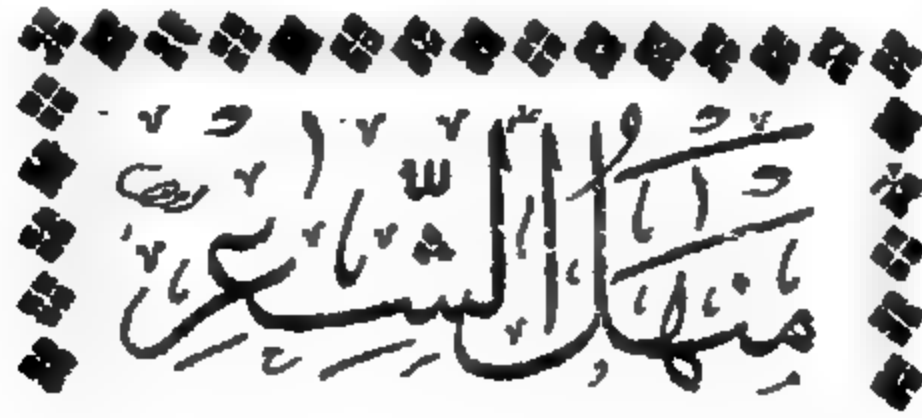 مِنهَلُ الشَّاعِرِ